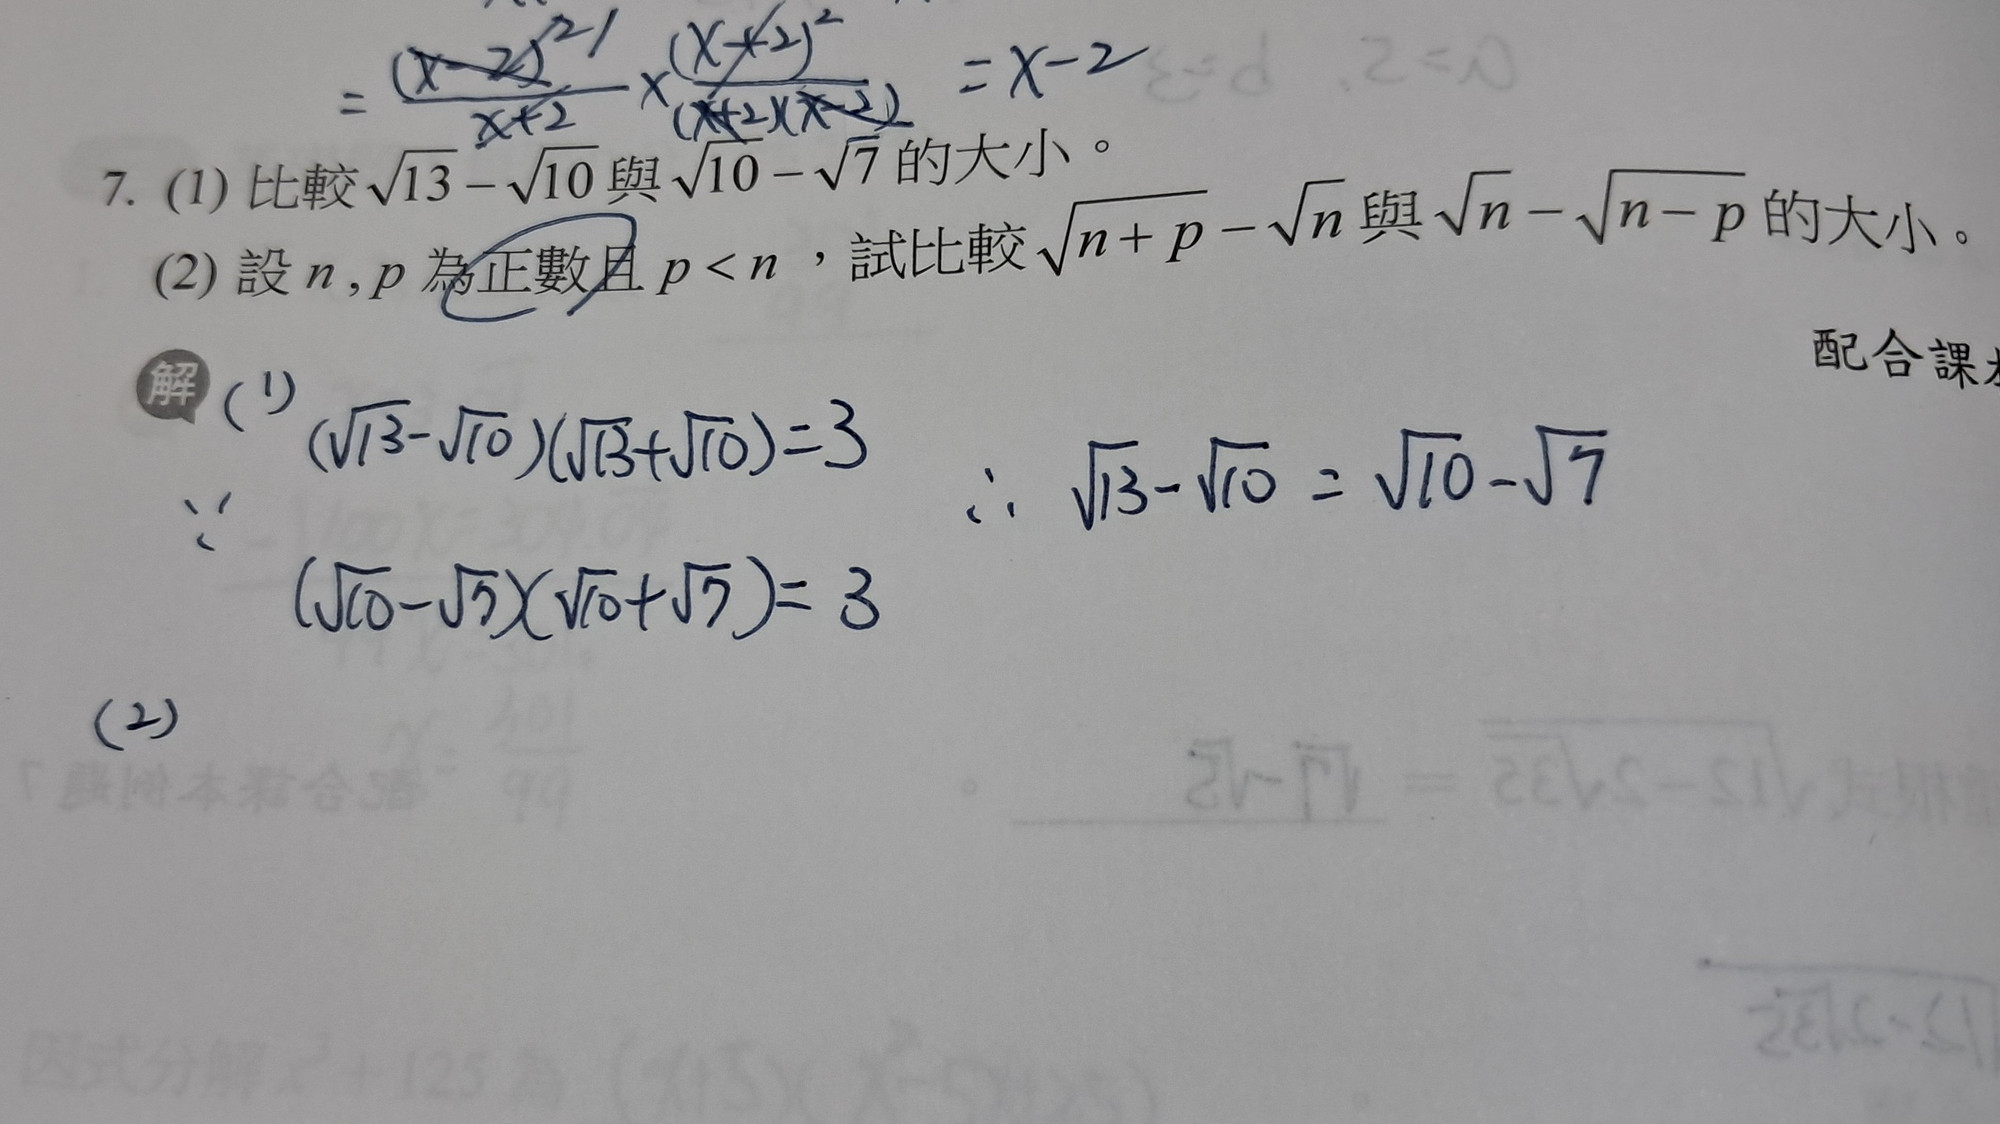 = (x-2)²¹/x+2 × (x+2)²/(x+2)(x-2) = x-2
7. (1) 比較√13 − √10 與 √10 − √7 的大小。
(2) 設 n , p 為正數且 p < n ，試比較 √(n + p) − √n 與 √n − √(n − p) 的大小。
配合課
解 (1) (√13-√10)(√13+√10)=3
∵ ∴ √13-√10 = √10-√7
(√10-√7)(√10+√7)= 3
(2)